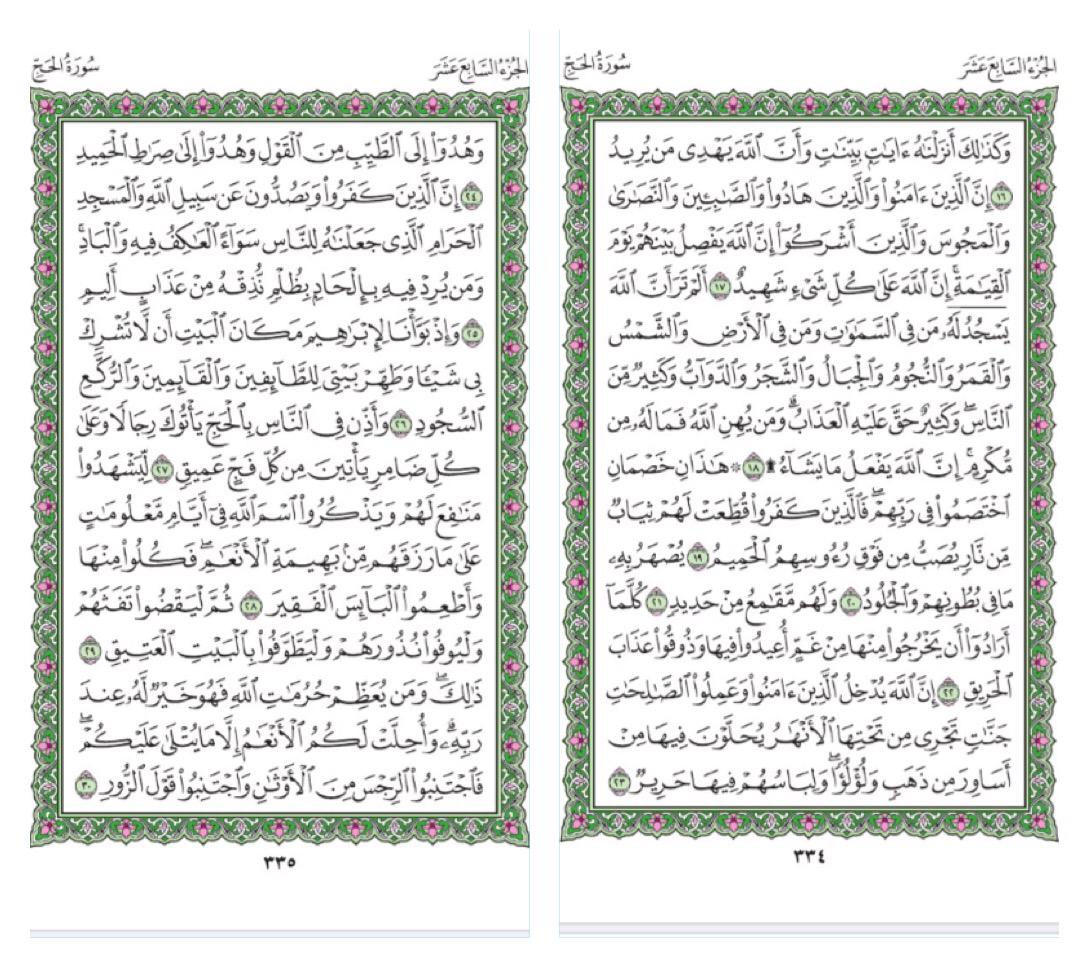 الجُزْءُ السَّابِعَ عَشَرَ
سُورَةُ الحَجِّ
وَكَذَٰلِكَ أَنزَلۡنَٰهُ ءَايَٰتِۭ بَيِّنَٰتٖ وَأَنَّ ٱللَّهَ يَهۡدِي مَن يُرِيدُ
١٦ إِنَّ ٱلَّذِينَ ءَامَنُواْ وَٱلَّذِينَ هَادُواْ وَٱلصَّٰبِـِٔينَ وَٱلنَّصَٰرَىٰ
وَٱلۡمَجُوسَ وَٱلَّذِينَ أَشۡرَكُوٓاْ إِنَّ ٱللَّهَ يَفۡصِلُ بَيۡنَهُمۡ يَوۡمَ
ٱلۡقِيَٰمَةِۚ إِنَّ ٱللَّهَ عَلَىٰ كُلِّ شَيۡءٖ شَهِيدٌ ١٧ أَلَمۡ تَرَ أَنَّ ٱللَّهَ
يَسۡجُدُۤ لَهُۥۤ مَن فِي ٱلسَّمَٰوَٰتِ وَمَن فِي ٱلۡأَرۡضِ وَٱلشَّمۡسُ
وَٱلۡقَمَرُ وَٱلنُّجُومُ وَٱلۡجِبَالُ وَٱلشَّجَرُ وَٱلدَّوَآبُّ وَكَثِيرٞ مِّنَ
ٱلنَّاسِۖ وَكَثِيرٌ حَقَّ عَلَيۡهِ ٱلۡعَذَابُۗ وَمَن يُهِنِ ٱللَّهُ فَمَا لَهُۥ مِن
مُّكۡرِمٍۚ إِنَّ ٱللَّهَ يَفۡعَلُ مَا يَشَآءُ۩ ١٨ ۞هَٰذَانِ خَصۡمَانِ
ٱخۡتَصَمُواْ فِي رَبِّهِمۡۖ فَٱلَّذِينَ كَفَرُواْ قُطِّعَتۡ لَهُمۡ ثِيَابٞ
مِّن نَّارٖ يُصَبُّ مِن فَوۡقِ رُءُوسِهِمُ ٱلۡحَمِيمُ ١٩ يُصۡهَرُ بِهِۦ
مَا فِي بُطُونِهِمۡ وَٱلۡجُلُودُ ٢٠ وَلَهُم مَّقَٰمِعُ مِنۡ حَدِيدٖ ٢١ كُلَّمَآ
أَرَادُوٓاْ أَن يَخۡرُجُواْ مِنۡهَا مِنۡ غَمٍّ أُعِيدُواْ فِيهَا وَذُوقُواْ عَذَابَ
ٱلۡحَرِيقِ ٢٢ إِنَّ ٱللَّهَ يُدۡخِلُ ٱلَّذِينَ ءَامَنُواْ وَعَمِلُواْ ٱلصَّٰلِحَٰتِ
جَنَّٰتٖ تَجۡرِي مِن تَحۡتِهَا ٱلۡأَنۡهَٰرُ يُحَلَّوۡنَ فِيهَا مِنۡ
أَسَاوِرَ مِن ذَهَبٖ وَلُؤۡلُؤٗاۖ وَلِبَاسُهُمۡ فِيهَا حَرِيرٞ ٢٣
٣٣٤
الجُزْءُ السَّابِعَ عَشَرَ
سُورَةُ الحَجِّ
وَهُدُوٓاْ إِلَى ٱلطَّيِّبِ مِنَ ٱلۡقَوۡلِ وَهُدُوٓاْ إِلَىٰ صِرَٰطِ ٱلۡحَمِيدِ
٢٤ إِنَّ ٱلَّذِينَ كَفَرُواْ وَيَصُدُّونَ عَن سَبِيلِ ٱللَّهِ وَٱلۡمَسۡجِدِ
ٱلۡحَرَامِ ٱلَّذِي جَعَلۡنَٰهُ لِلنَّاسِ سَوَآءً ٱلۡعَٰكِفُ فِيهِ وَٱلۡبَادِۚ
وَمَن يُرِدۡ فِيهِ بِإِلۡحَادِۭ بِظُلۡمٖ نُّذِقۡهُ مِنۡ عَذَابٍ أَلِيمٖ
٢٥ وَإِذۡ بَوَّأۡنَا لِإِبۡرَٰهِيمَ مَكَانَ ٱلۡبَيۡتِ أَن لَّا تُشۡرِكۡ
بِي شَيۡـٔٗا وَطَهِّرۡ بَيۡتِيَ لِلطَّآئِفِينَ وَٱلۡقَآئِمِينَ وَٱلرُّكَّعِ
ٱلسُّجُودِ ٢٦ وَأَذِّن فِي ٱلنَّاسِ بِٱلۡحَجِّ يَأۡتُوكَ رِجَالٗا وَعَلَىٰ
كُلِّ ضَامِرٖ يَأۡتِينَ مِن كُلِّ فَجٍّ عَمِيقٖ ٢٧ لِّيَشۡهَدُواْ
مَنَٰفِعَ لَهُمۡ وَيَذۡكُرُواْ ٱسۡمَ ٱللَّهِ فِيٓ أَيَّامٖ مَّعۡلُومَٰتٍ
عَلَىٰ مَا رَزَقَهُم مِّنۢ بَهِيمَةِ ٱلۡأَنۡعَٰمِۖ فَكُلُواْ مِنۡهَا
وَأَطۡعِمُواْ ٱلۡبَآئِسَ ٱلۡفَقِيرَ ٢٨ ثُمَّ لۡيَقۡضُواْ تَفَثَهُمۡ
وَلۡيُوفُواْ نُذُورَهُمۡ وَلۡيَطَّوَّفُواْ بِٱلۡبَيۡتِ ٱلۡعَتِيقِ ٢٩
ذَٰلِكَۖ وَمَن يُعَظِّمۡ حُرُمَٰتِ ٱللَّهِ فَهُوَ خَيۡرٞ لَّهُۥ عِندَ
رَبِّهِۦۗ وَأُحِلَّتۡ لَكُمُ ٱلۡأَنۡعَٰمُ إِلَّا مَا يُتۡلَىٰ عَلَيۡكُمۡۖ
فَٱجۡتَنِبُواْ ٱلرِّجۡسَ مِنَ ٱلۡأَوۡثَٰنِ وَٱجۡتَنِبُواْ قَوۡلَ ٱلزُّورِ ٣٠
٣٣٥